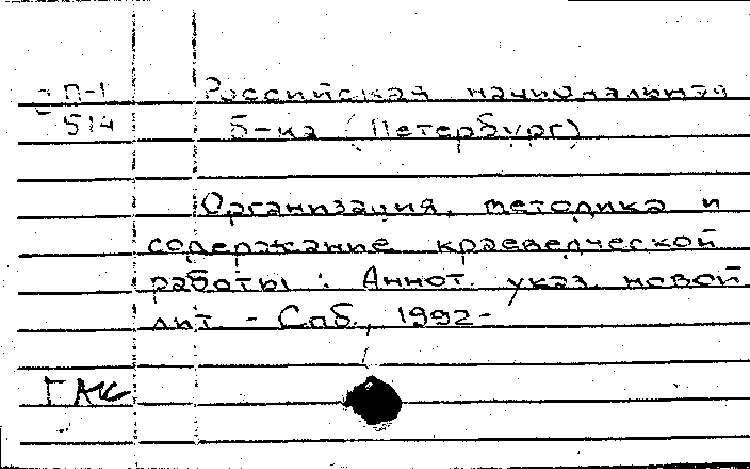 П-1 Российская национальная
514 б-ка (Петербург)
Организация, методика и
содержание краеведческой
работы : Аннот. указ. новой
лит. - Спб., 1992-
ГАК